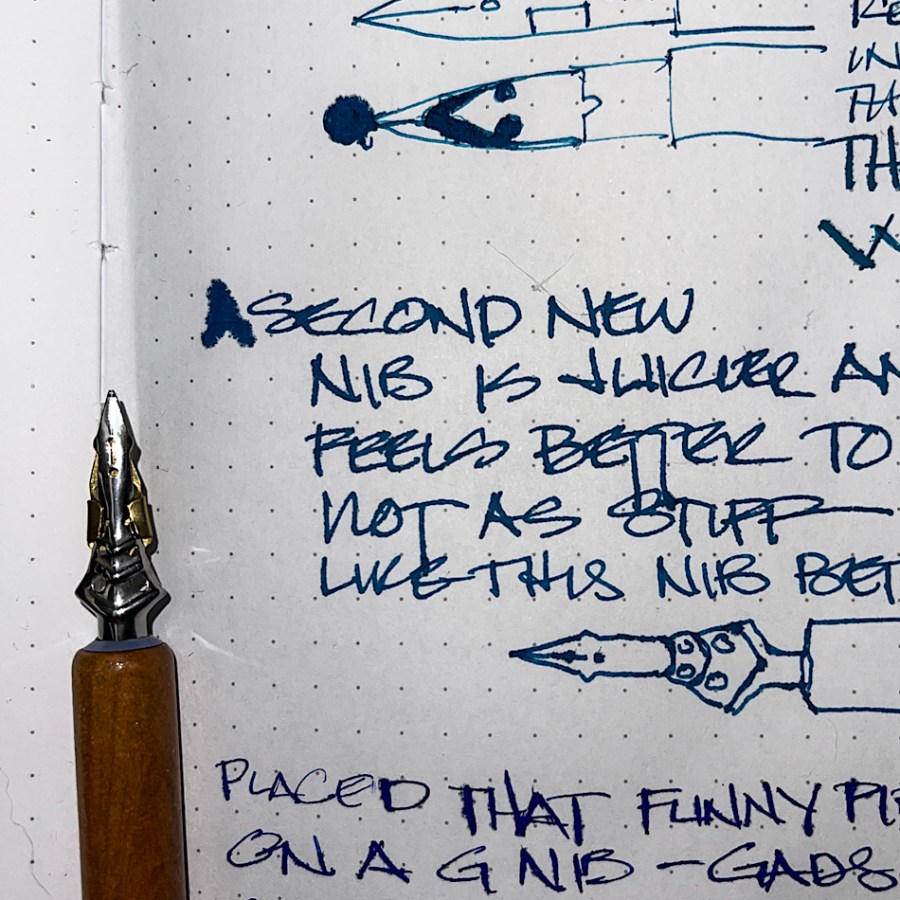 IN
TH
TH
W
A SECOND NEW
NIB IS JUICIER AN
FEELS BETTER TO
NOT AS STIFF—
LIKE THIS NIB BET
PLACED THAT FUNNY PIE
ON A G NIB — GADS